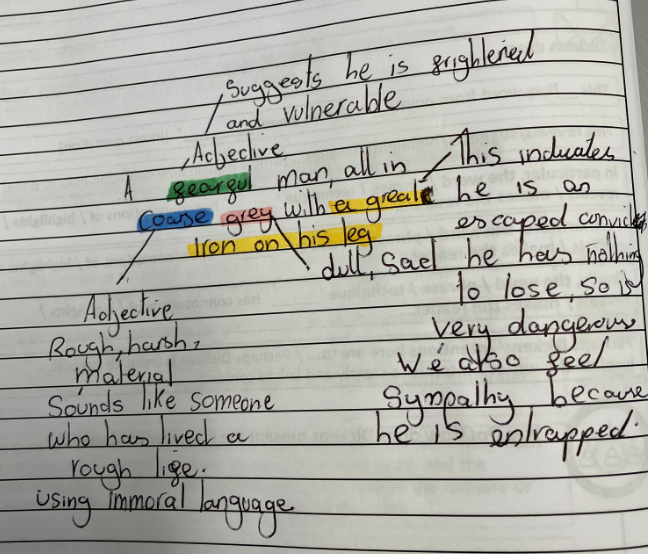 Suggests he is frightened
and vulnerable
Adjective
A fearful man, all in
coarse grey with a great
Iron on his leg
This indicates
he is an
escaped convict
he has nothing
to lose, so is
very dangerous
We also feel
Sympathy because
he is entrapped.
dull, Sad
Adjective
Rough, harsh,
material
Sounds like someone
who has lived a
rough life.
using immoral language